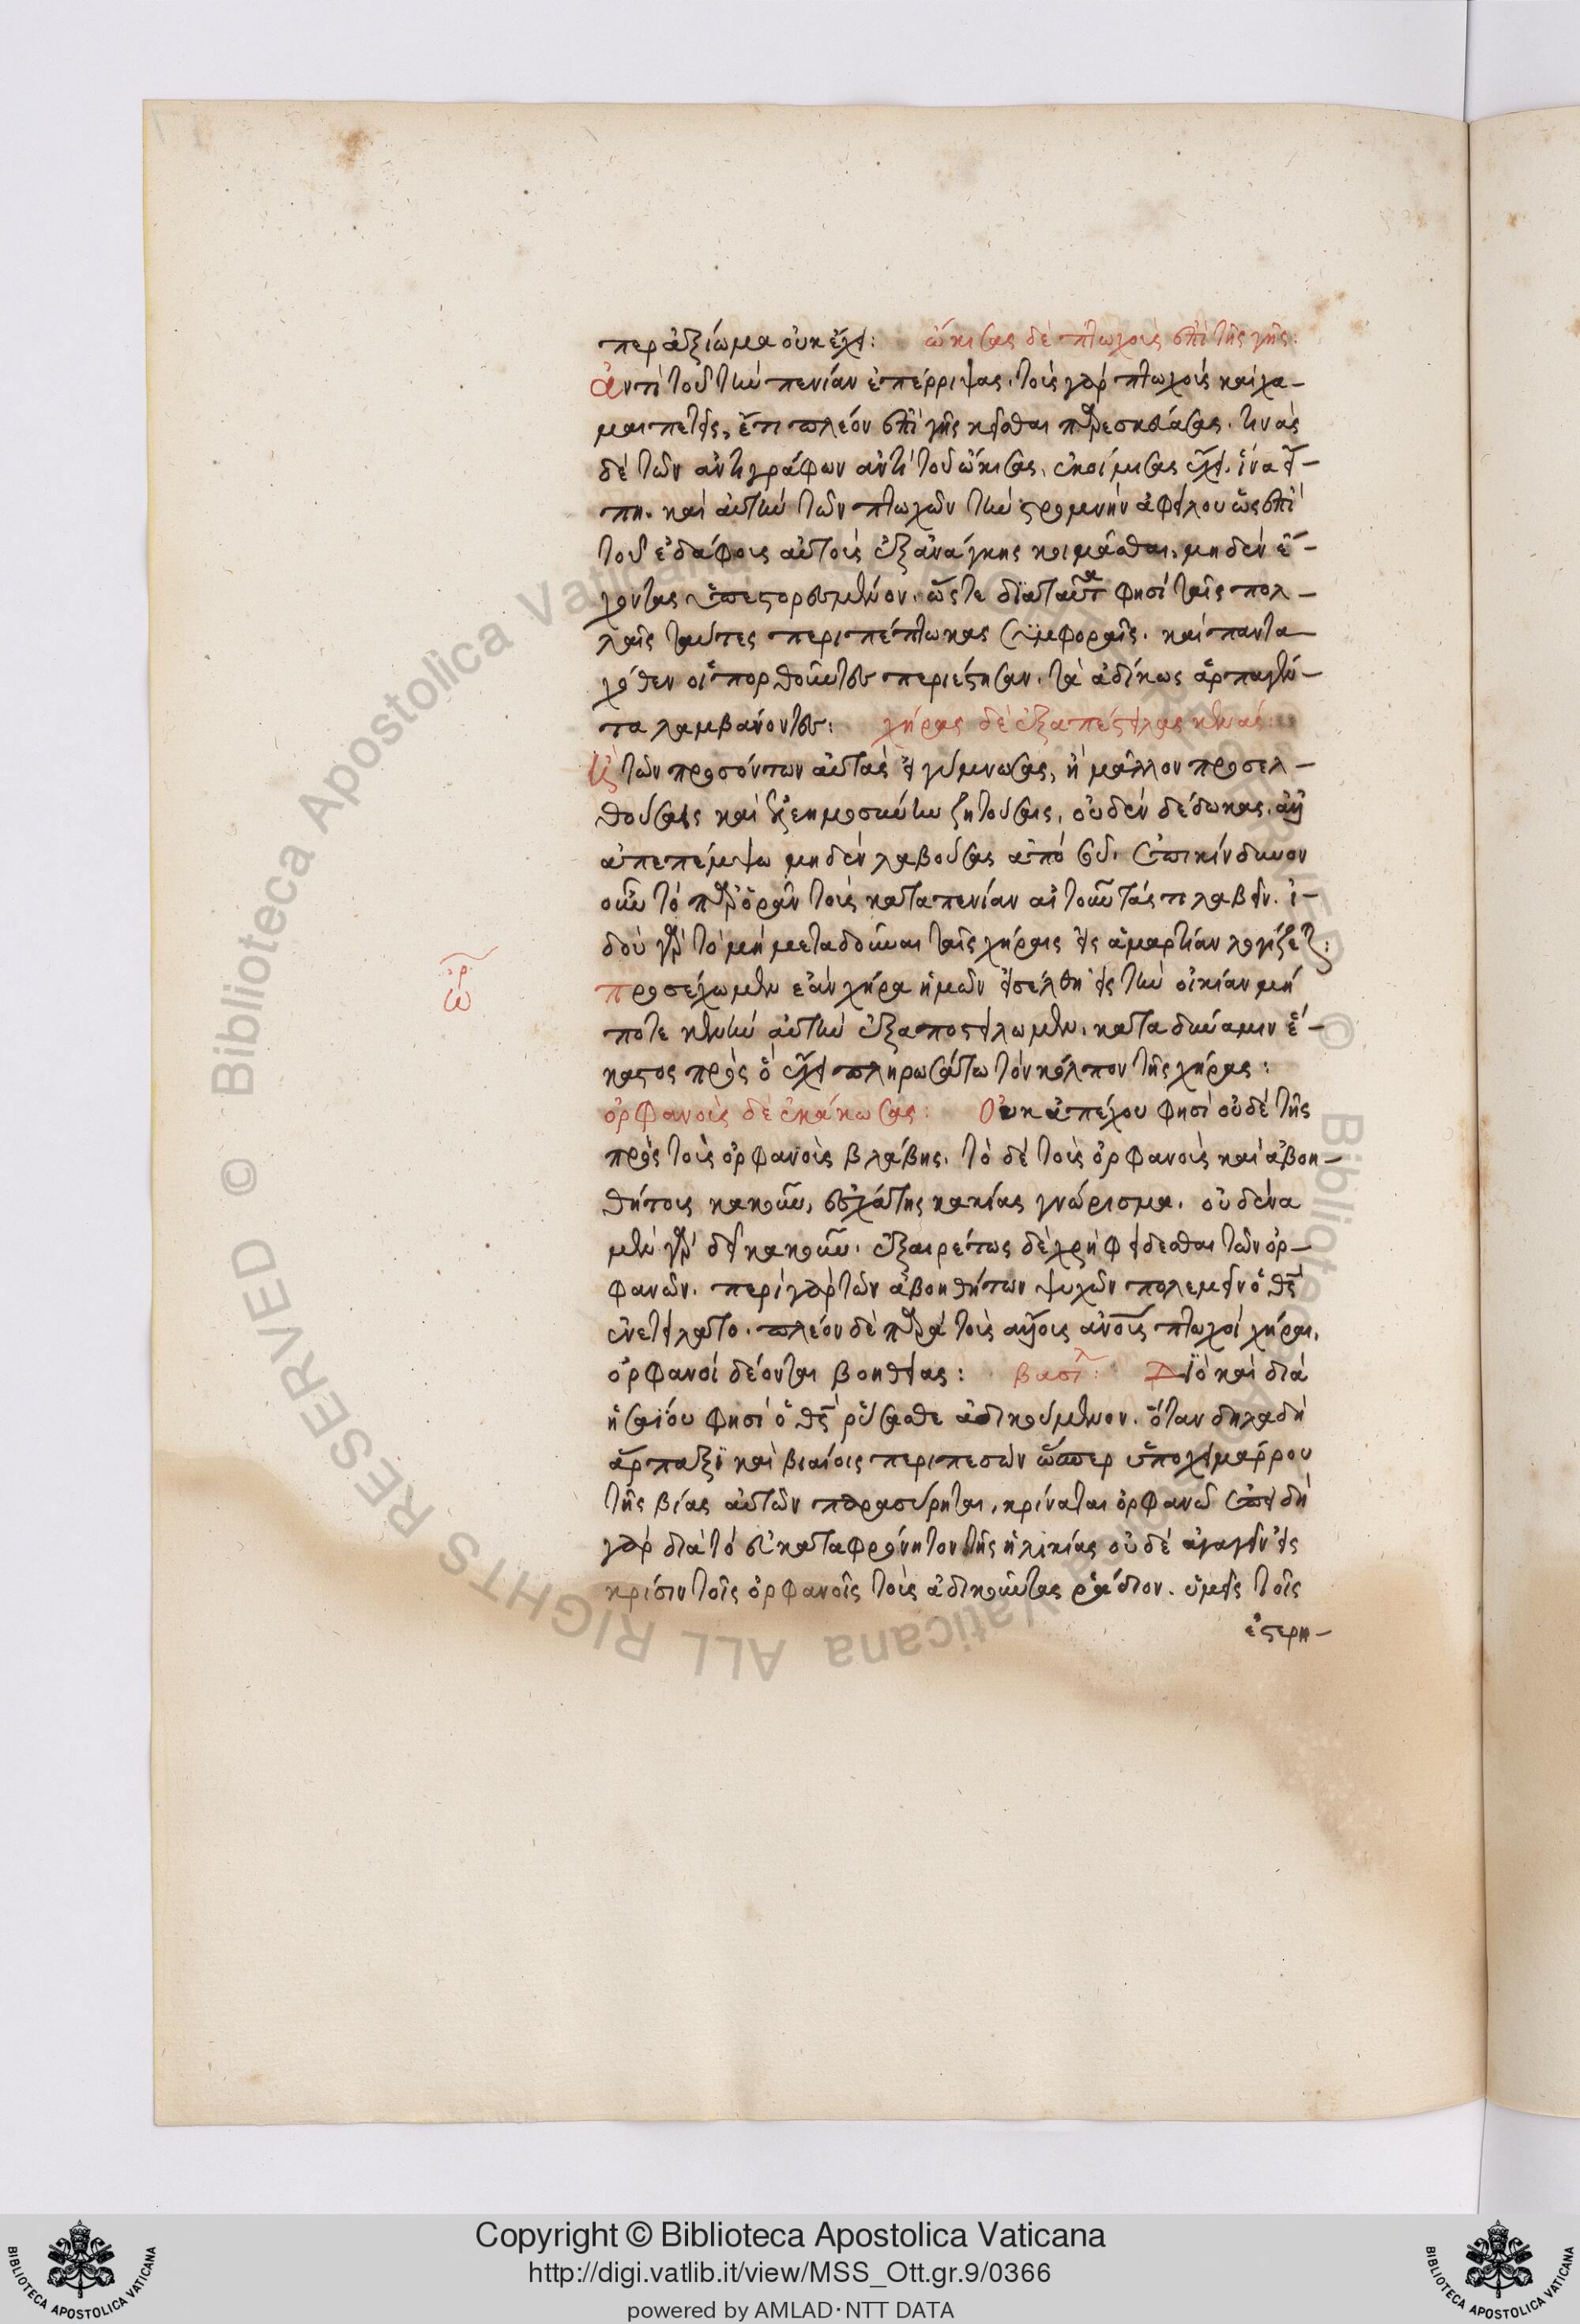 περ ἀξίωμα οὐκ ἔχει: ᾤκισας δὲ πτωχοὺς ἐπὶ τῆς γῆς:
Ἀντὶ τοῦ τὴν πενίαν ἐπέρριψας. τοὺς γὰρ πτωχοὺς καὶ χα–
μαιπετεῖς, ἔτι πλέον ἐπὶ γῆς κεῖσθαι παρεσκεύασας. τινὰς
δὲ τῶν ἀντιγράφων ἀντὶ τοῦ ᾤκισας, ἐκοίμισας ἔχει. ἵνα εἴ–
πη. καὶ αὐτὴν τῶν πτωχῶν τὴν στρωμνὴν ἀφείλου ὡς ἐπὶ
τοῦ ἐδάφους αὐτοὺς ἐξ ἀνάγκης κοιμᾶσθαι, μηδὲν ἔ–
χοντας ὑπεστορεσμένον. ὥστε διὰ ταῦτα φησὶ ταῖς πολ–
λαῖς ταύταις περιπέπτωκας συμφοραῖς. καὶ παντα–
χόθεν οἱ πορθοῦντες περιέστησαν. τὰ ἀδίκως ἁρπαγέν–
τα λαμβάνοντες: χήρας δὲ ἐξαπέστειλας κενάς:
Ἢ τῶν προσόντων αὐτὰς ἐγύμνωσας, ἢ μᾶλλον προσελ–
θούσαις καὶ ἐλεημοσύνην ζητούσαις, οὐδὲν δέδωκας. ἀλλ'
ἀπεπέμψω μηδὲν λαβούσας ἀπὸ σοῦ. ἐπικίνδυνον
οὖν τὸ παρορᾶν τοὺς κατὰ πενίαν αἰτοῦντάς τι λαβεῖν. ἰ–
δοὺ γὰρ τὸ μὴ μεταδοῦναι ταῖς χήραις εἰς ἁμαρτίαν λογίζεται:
ὠρ
προσέχωμεν ἐὰν χήρα ἡμῶν εἰσέλθη εἰς τὴν οἰκίαν μή
ποτε κενὴν αὐτὴν ἐξαποστείλωμεν. κατὰ δύναμιν ἕ–
καστος πρὸς ὃ ἔχει πληρωσάτω τὸν κόλπον τῆς χήρας:
ὀρφανοὺς δὲ ἐκάκωσας: Οὐκ ἀπέχου φησὶ οὐδὲ τῆς
πρὸς τοὺς ὀρφανοὺς βλάβης. τὸ δὲ τοὺς ὀρφανοὺς καὶ ἀβοη–
θήτους κακοῦν, ἐσχάτης κακίας γνώρισμα. οὐδένα
μὲν γὰρ δεῖ κακοῦν. ἐξαιρέτως δὲ χρὴ φείδεσθαι τῶν ὀρ–
φανῶν. περὶ γὰρ τῶν ἀβοηθήτων ψυχῶν πολεμεῖν ὁ θς
ἐνετείλατο. πλέον δὲ παρὰ τοὺς ἄλλους ἀνους πτωχοὶ χῆραι,
ὀρφανοὶ δέονται βοηθείας: βασιλ: Διὸ καὶ διὰ
ἡσαΐου φησὶ ὁ θς ῥύσασθε ἀδικούμενον. ὅταν δηλαδὴ
ἅρπαξι καὶ βιαίοις περιπεσὼν ὥσπερ ὑπὸ χειμάρρου
τῆς βίας αὐτῶν παρασύρηται, κρίνατε ὀρφανῶ ἐπειδὴ
γὰρ διὰ τὸ εὐκαταφρόνητον τῆς ἡλικίας οὐδὲ ἀγαγεῖν εἰς
κρίσιν τοῖς ὀρφανοῖς τοὺς ἀδικοῦντας ῥάδιον. ὑμεῖς τοῖς
ἐστερη–
Copyright © Biblioteca Apostolica Vaticana
http://digi.vatlib.it/view/MSS_Ott.gr.9/0366
powered by AMLAD · NTT DATA
BIBLIOTECA APOSTOLICA VATICANA
BIBLIOTECA APOSTOLICA VATICANA